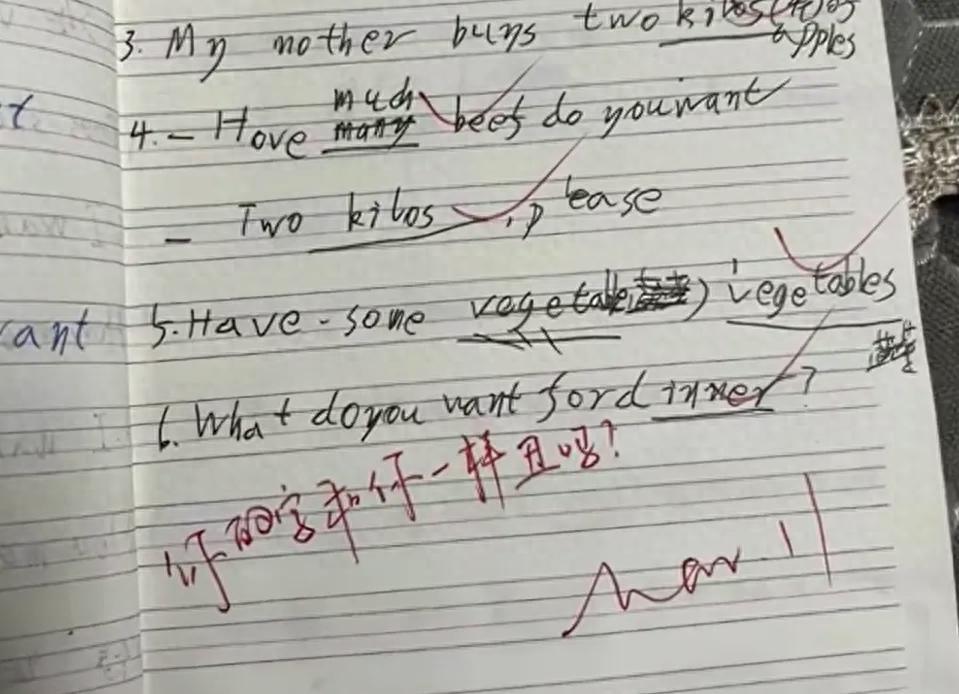 3. My mother buys two kilos of
apples
much
4. - Hove many beef do you want
- Two kilos, please
5. Have some vegetable) vegetables
ant
6. What do you want for dinner?
你的字和你一样丑吗?
Mar 11